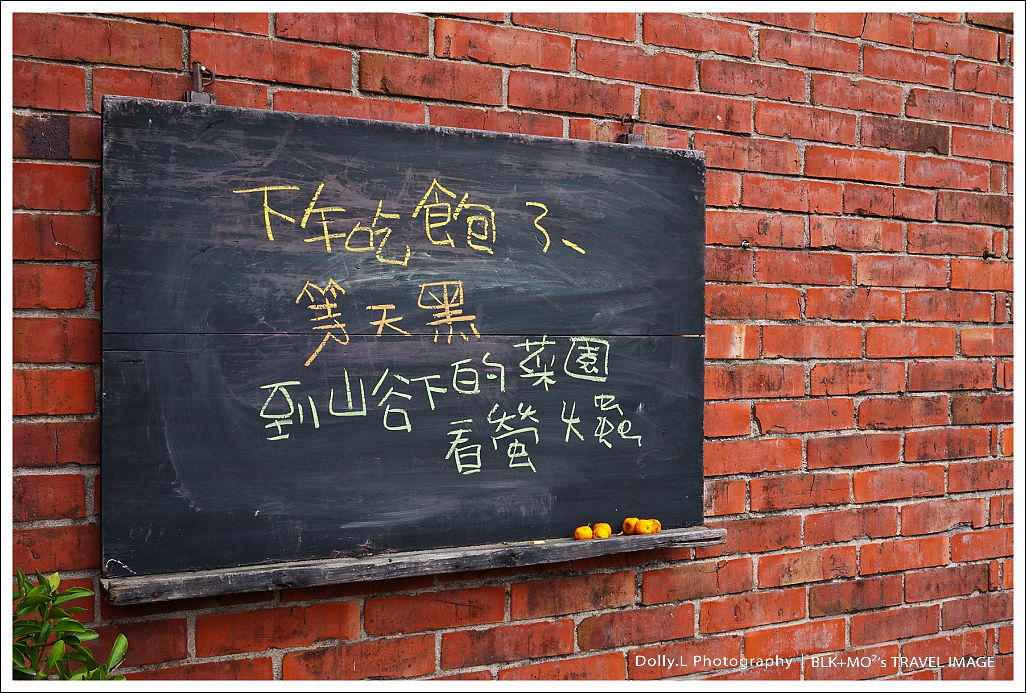 下午吃飽了、
等天黑
到山谷下的菜園
看螢火蟲
Dolly.L Photography | BLK+MO²'s TRAVEL IMAGE